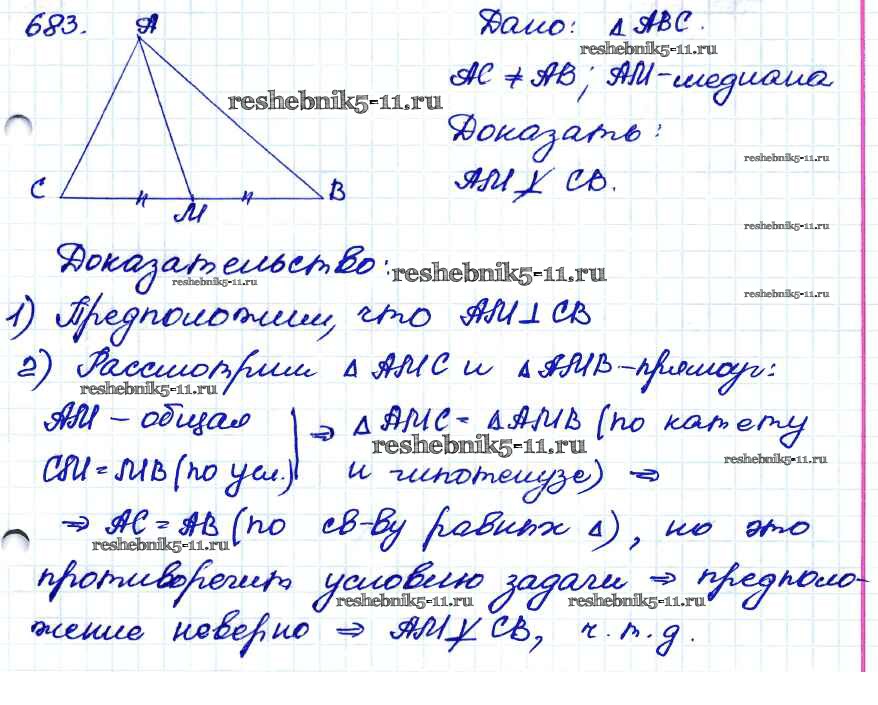 683.
A
C
M
B
Дано: △ ABC.
AC ≠ AB; AM-медиана
Доказать:
AM ⊥̸ CB.
Доказательство:
1) Предположим, что AM ⊥ CB
2) Рассмотрим △ AMC и △ AMB-прямоуг:
AM – общая
CM = MB (по усл.)
⇒ △ AMC = △ AMB (по катету
и гипотенузе) ⇒
⇒ AC = AB (по св-ву равных △), но это
противоречит условию задачи ⇒ предполо-
жение неверно ⇒ AM ⊥̸ CB, ч.т.д.
reshebnik5-11.ru
reshebnik5-11.ru
reshebnik5-11.ru
reshebnik5-11.ru
reshebnik5-11.ru
reshebnik5-11.ru
reshebnik5-11.ru
reshebnik5-11.ru
reshebnik5-11.ru
reshebnik5-11.ru
reshebnik5-11.ru
reshebnik5-11.ru
reshebnik5-11.ru
reshebnik5-11.ru